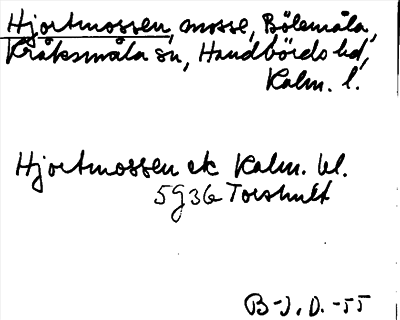 Hjortmossen, mosse, Bölemåla,
Kråksmåla sn, Handbörds hd,
Kalm. l.
Hjortmossen ek Kalm. bl.
5936 Torshult
B-J. D. -55